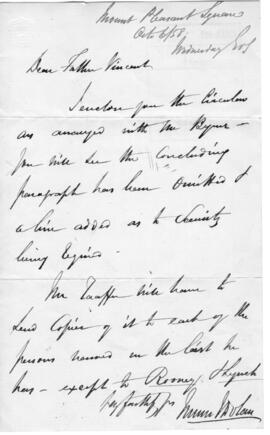 Mount Pleasant Square
Oct 6/58
Wednesday
Dear Father Vincent
I enclose you the Circular
as arranged with the
you will see the Concluding
paragraph has been Omitted &
a line added as to Security
being required
Mr Taaffe will have to
Send Copies of it to each of the
persons named in the List he
has - except to Rooney & Lynch